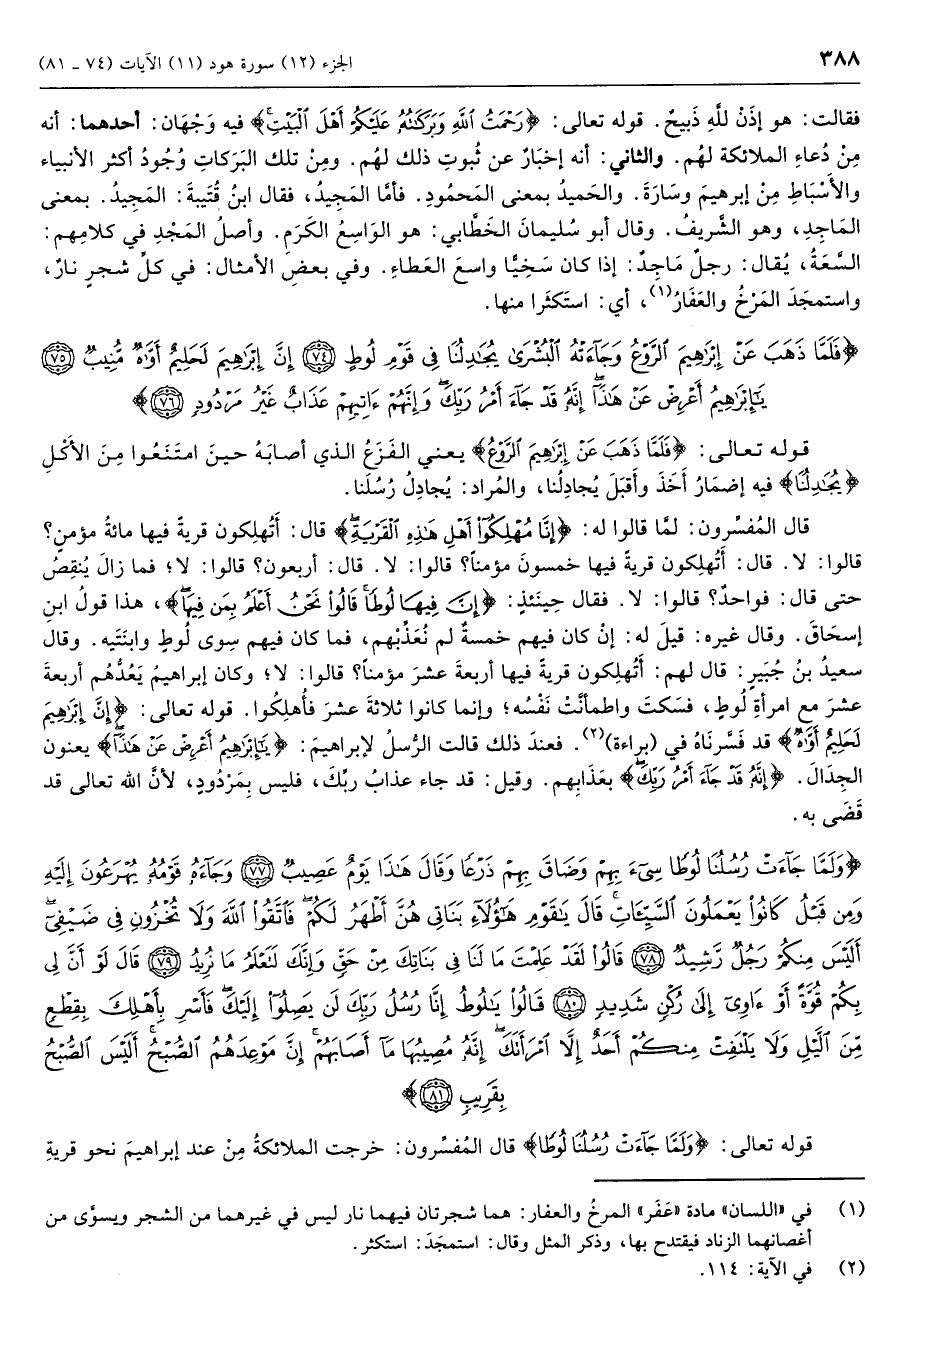 ٣٨٨ الجزء (١٢) سورة هود (١١) الآيات (٧٤ - ٨١)
فقالت: هو إذَنْ للَّهِ ذَبيحٌ. قوله تعالى: ﴿رَحْمَتُ ٱللَّهِ وَبَرَكَٰتُهُۥ عَلَيْكُمْ أَهْلَ ٱلْبَيْتِۚ﴾ فيه وَجْهَان: أحدهما: أنه
مِنْ دُعاءِ الملائكة لهُم. والثاني: أنه إخبَارٌ عن ثُبوتِ ذلك لهُم. ومِنْ تلك البَركاتِ وُجُودُ أكثر الأنبياء
والأَسْبَاطِ مِنْ إبرهيمَ وسَارَةَ. والحَميدُ بمعنى المَحمُودِ. فأمَّا المَجيدُ، فقال ابنُ قُتَيبةَ: المَجِيدُ. بمعنى
المَاجِدِ، وهو الشَّريفُ. وقال أبو سُليمانَ الخَطَّابي: هو الوَاسِعُ الكَرَمِ. وأصلُ المَجْدِ في كلامِهم:
السَّعَةُ، يُقال: رجلٌ مَاجِدٌ: إذا كان سَخِيًّا واسعَ العَطاءِ. وفي بعضِ الأمثال: في كلِّ شجرٍ نارٌ،
واستمجَدَ المَرْخُ والعَفَارُ(١)، أي: استَكثَرا منها.
﴿فَلَمَّا ذَهَبَ عَنْ إِبْرَٰهِيمَ ٱلرَّوْعُ وَجَآءَتْهُ ٱلْبُشْرَىٰ يُجَٰدِلُنَا فِى قَوْمِ لُوطٍ ﴿٧٤﴾ إِنَّ إِبْرَٰهِيمَ لَحَلِيمٌ أَوَّٰهٌ مُّنِيبٌ ﴿٧٥﴾
يَٰٓإِبْرَٰهِيمُ أَعْرِضْ عَنْ هَٰذَآۖ إِنَّهُۥ قَدْ جَآءَ أَمْرُ رَبِّكَۖ وَإِنَّهُمْ ءَاتِيهِمْ عَذَابٌ غَيْرُ مَرْدُودٍ ﴿٧٦﴾﴾
قوله تعالى: ﴿فَلَمَّا ذَهَبَ عَنْ إِبْرَٰهِيمَ ٱلرَّوْعُ﴾ يعني الفَزَعُ الذي أصابَهُ حينَ امتَنَعُوا مِنَ الأَكْلِ
﴿يُجَٰدِلُنَا﴾ فيه إضمَارُ أخَذَ وأقبَلَ يُجادِلُنا، والمُراد: يُجادِلُ رُسُلَنا.
قال المُفسِّرون: لمَّا قالوا له: ﴿إِنَّا مُهْلِكُوٓا۟ أَهْلِ هَٰذِهِ ٱلْقَرْيَةِۖ﴾ قال: أَتُهلِكون قريةً فيها مائةُ مؤمنٍ؟
قالوا: لا. قال: أَتُهلِكون قريةً فيها خمسونَ مؤمناً؟ قالوا: لا. قال: أربعون؟ قالوا: لا؛ فما زالَ يُنقِصُ
حتى قال: فواحدٌ؟ قالوا: لا. فقال حِينَئذٍ: ﴿إِنَّ فِيهَا لُوطًاۚ قَالُوا۟ نَحْنُ أَعْلَمُ بِمَن فِيهَاۖ﴾، هذا قولُ ابنِ
إسحَاقَ. وقال غيره: قيلَ له: إنْ كان فيهم خمسةٌ لم نُعَذِّبْهم، فما كان فيهم سِوى لُوطٍ وابنَتَيه. وقال
سعيدُ بنُ جُبَيرٍ: قال لهم: أَتُهلكون قريةً فيها أربعةَ عشرَ مؤمناً؟ قالوا: لا؛ وكان إبراهيمُ يَعُدُّهم أربعةَ
عشرَ مع امرأةِ لُوطٍ، فسَكتَ واطمأنَّتْ نَفْسُه؛ وإنما كانوا ثلاثةَ عشرَ فأُهلِكوا. قوله تعالى: ﴿إِنَّ إِبْرَٰهِيمَ
لَحَلِيمٌ أَوَّٰهٌ﴾ قد فَسَّرنَاهُ في (براءة)(٢). فعندَ ذلك قالت الرُّسلُ لإبراهيمَ: ﴿يَٰٓإِبْرَٰهِيمُ أَعْرِضْ عَنْ هَٰذَآۖ﴾ يعنون
الجِدَالَ. ﴿إِنَّهُۥ قَدْ جَآءَ أَمْرُ رَبِّكَۖ﴾ بعَذَابِهم. وقيل: قد جاء عذابُ ربِّكَ، فليس بِمَرْدُودٍ، لأنَّ الله تعالى قد
قَضَى به.
﴿وَلَمَّا جَآءَتْ رُسُلُنَا لُوطًا سِىٓءَ بِهِمْ وَضَاقَ بِهِمْ ذَرْعًا وَقَالَ هَٰذَا يَوْمٌ عَصِيبٌ ﴿٧٧﴾ وَجَآءَهُۥ قَوْمُهُۥ يُهْرَعُونَ إِلَيْهِ
وَمِن قَبْلُ كَانُوا۟ يَعْمَلُونَ ٱلسَّيِّـَٔاتِۚ قَالَ يَٰقَوْمِ هَٰٓؤُلَآءِ بَنَاتِى هُنَّ أَطْهَرُ لَكُمْۖ فَٱتَّقُوا۟ ٱللَّهَ وَلَا تُخْزُونِ فِى ضَيْفِىٓۖ
أَلَيْسَ مِنكُمْ رَجُلٌ رَّشِيدٌ ﴿٧٨﴾ قَالُوا۟ لَقَدْ عَلِمْتَ مَا لَنَا فِى بَنَاتِكَ مِنْ حَقٍّ وَإِنَّكَ لَتَعْلَمُ مَا نُرِيدُ ﴿٧٩﴾ قَالَ لَوْ أَنَّ لِى
بِكُمْ قُوَّةً أَوْ ءَاوِىٓ إِلَىٰ رُكْنٍ شَدِيدٍ ﴿٨٠﴾ قَالُوا۟ يَٰلُوطُ إِنَّا رُسُلُ رَبِّكَ لَن يَصِلُوٓا۟ إِلَيْكَۖ فَأَسْرِ بِأَهْلِكَ بِقِطْعٍ
مِّنَ ٱلَّيْلِ وَلَا يَلْتَفِتْ مِنكُمْ أَحَدٌ إِلَّا ٱمْرَأَتَكَۖ إِنَّهُۥ مُصِيبُهَا مَآ أَصَابَهُمْۚ إِنَّ مَوْعِدَهُمُ ٱلصُّبْحُۚ أَلَيْسَ ٱلصُّبْحُ
بِقَرِيبٍ ﴿٨١﴾﴾
قوله تعالى: ﴿وَلَمَّا جَآءَتْ رُسُلُنَا لُوطًا﴾ قال المُفسِّرون: خرجت الملائكةُ مِنْ عند إبراهيمَ نحو قريةِ
(١) في «اللسان» مادة «عَفَر» المرخُ والعفار: هما شجرتان فيهما نار ليس في غيرهما من الشجر ويسوَّى من
أغصانهما الزناد فيقتدح بها، وذكر المثل وقال: استمجَدَ: استكثر.
(٢) في الآية: ١١٤.